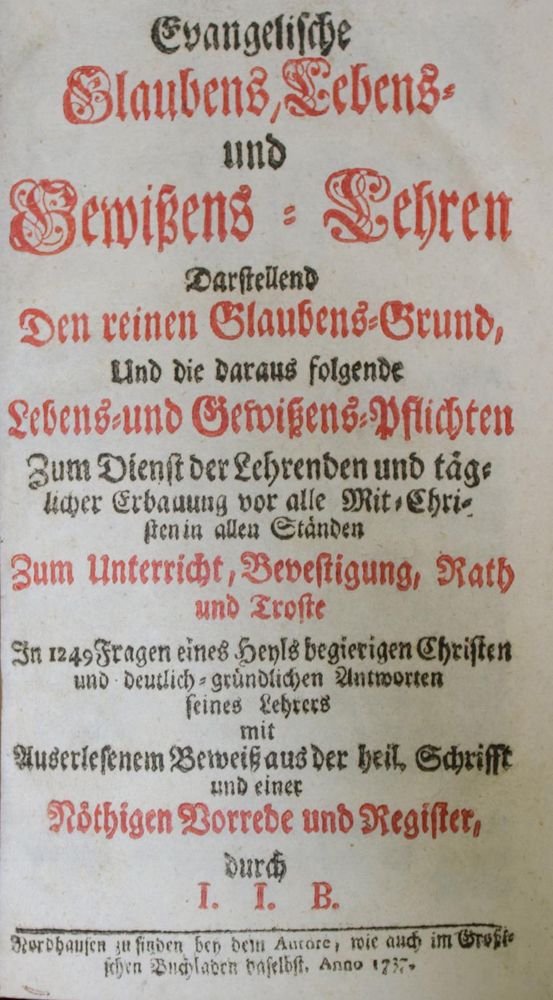 Evangelische
Glaubens, Lebens-
und
Gewißens-Lehren
Darstellend
Den reinen Glaubens-Grund,
Und die daraus folgende
Lebens- und Gewißens-Pflichten
Zum Dienst der Lehrenden und täg-
licher Erbauung vor alle Mit-Chri-
sten in allen Ständen
Zum Unterricht, Bevestigung, Rath
und Troste
In 1249 Fragen eines Heyls begierigen Christen
und deutlich-gründlichen Antworten
seines Lehrers
mit
Auserlesenem Beweiß aus der heil. Schrifft
und einer
Nöthigen Vorrede und Register,
durch
I. I. B.
Nordhausen zu finden bey dem Autore, wie auch im Großi-
schen Buchladen daselbst. Anno 1737.